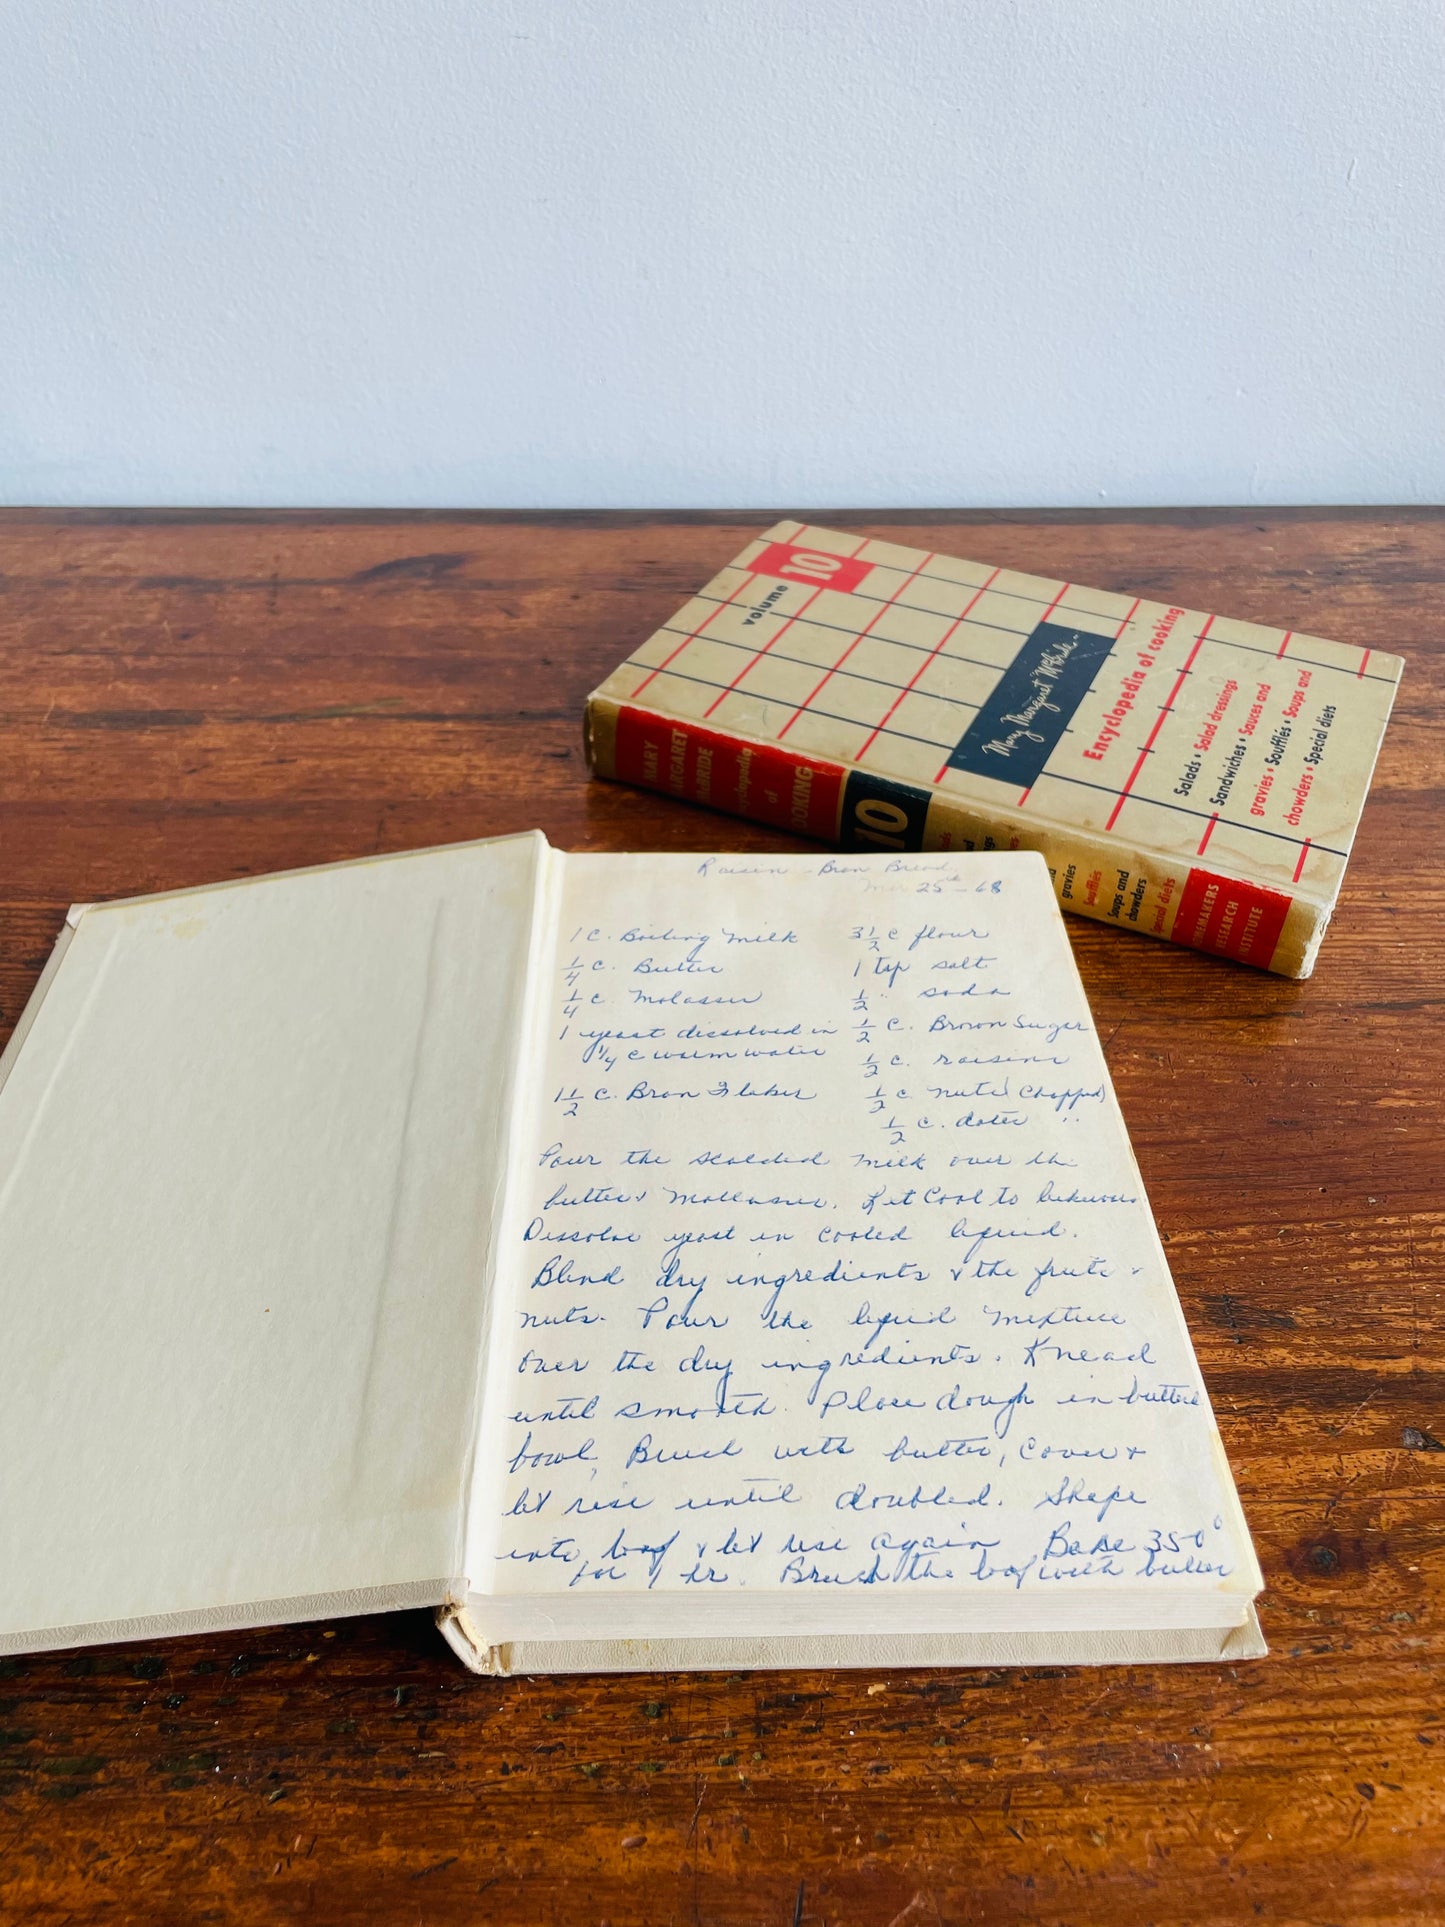 volume 10
Mary Margaret McBride
Encyclopedia of cooking
Salads • Salad dressings
Sandwiches • Sauces and
gravies • Soufflés • Soups and
chowders • Special diets
MARY
MARGARET
McBRIDE
encyclopedia
of
COOKING
10
gravies
Soufflés
Soups and
chowders
Special diets
HOMEMAKERS
RESEARCH
INSTITUTE
Raisin - Bran Bread
25 - 68
1 c. Boiling Milk
1/4 c. Butter
1/4 c Molasses
1 yeast dissolved in
1/4 c warm water
1 1/2 c. Bran Flakes
3 1/2 c flour
1 tsp salt
1/2 " soda
1/2 c. Brown Sugar
1/2 c. raisins
1/2 c nuts (Chopped)
1/2 c. dates "
Pour the scalded milk over the
butter & Mollasses. Let Cool to lukewarm
Dissolve yeast in cooled liquid.
Blend dry ingredients & the fruits &
nuts. Pour the liquid mixture
over the dry ingredients. Knead
until smooth. Place dough in buttered
bowl, Brush with butter, Cover &
let rise until doubled. Shape
into loaf & let rise again Bake 350°
for 1 hr. Brush the loaf with butter